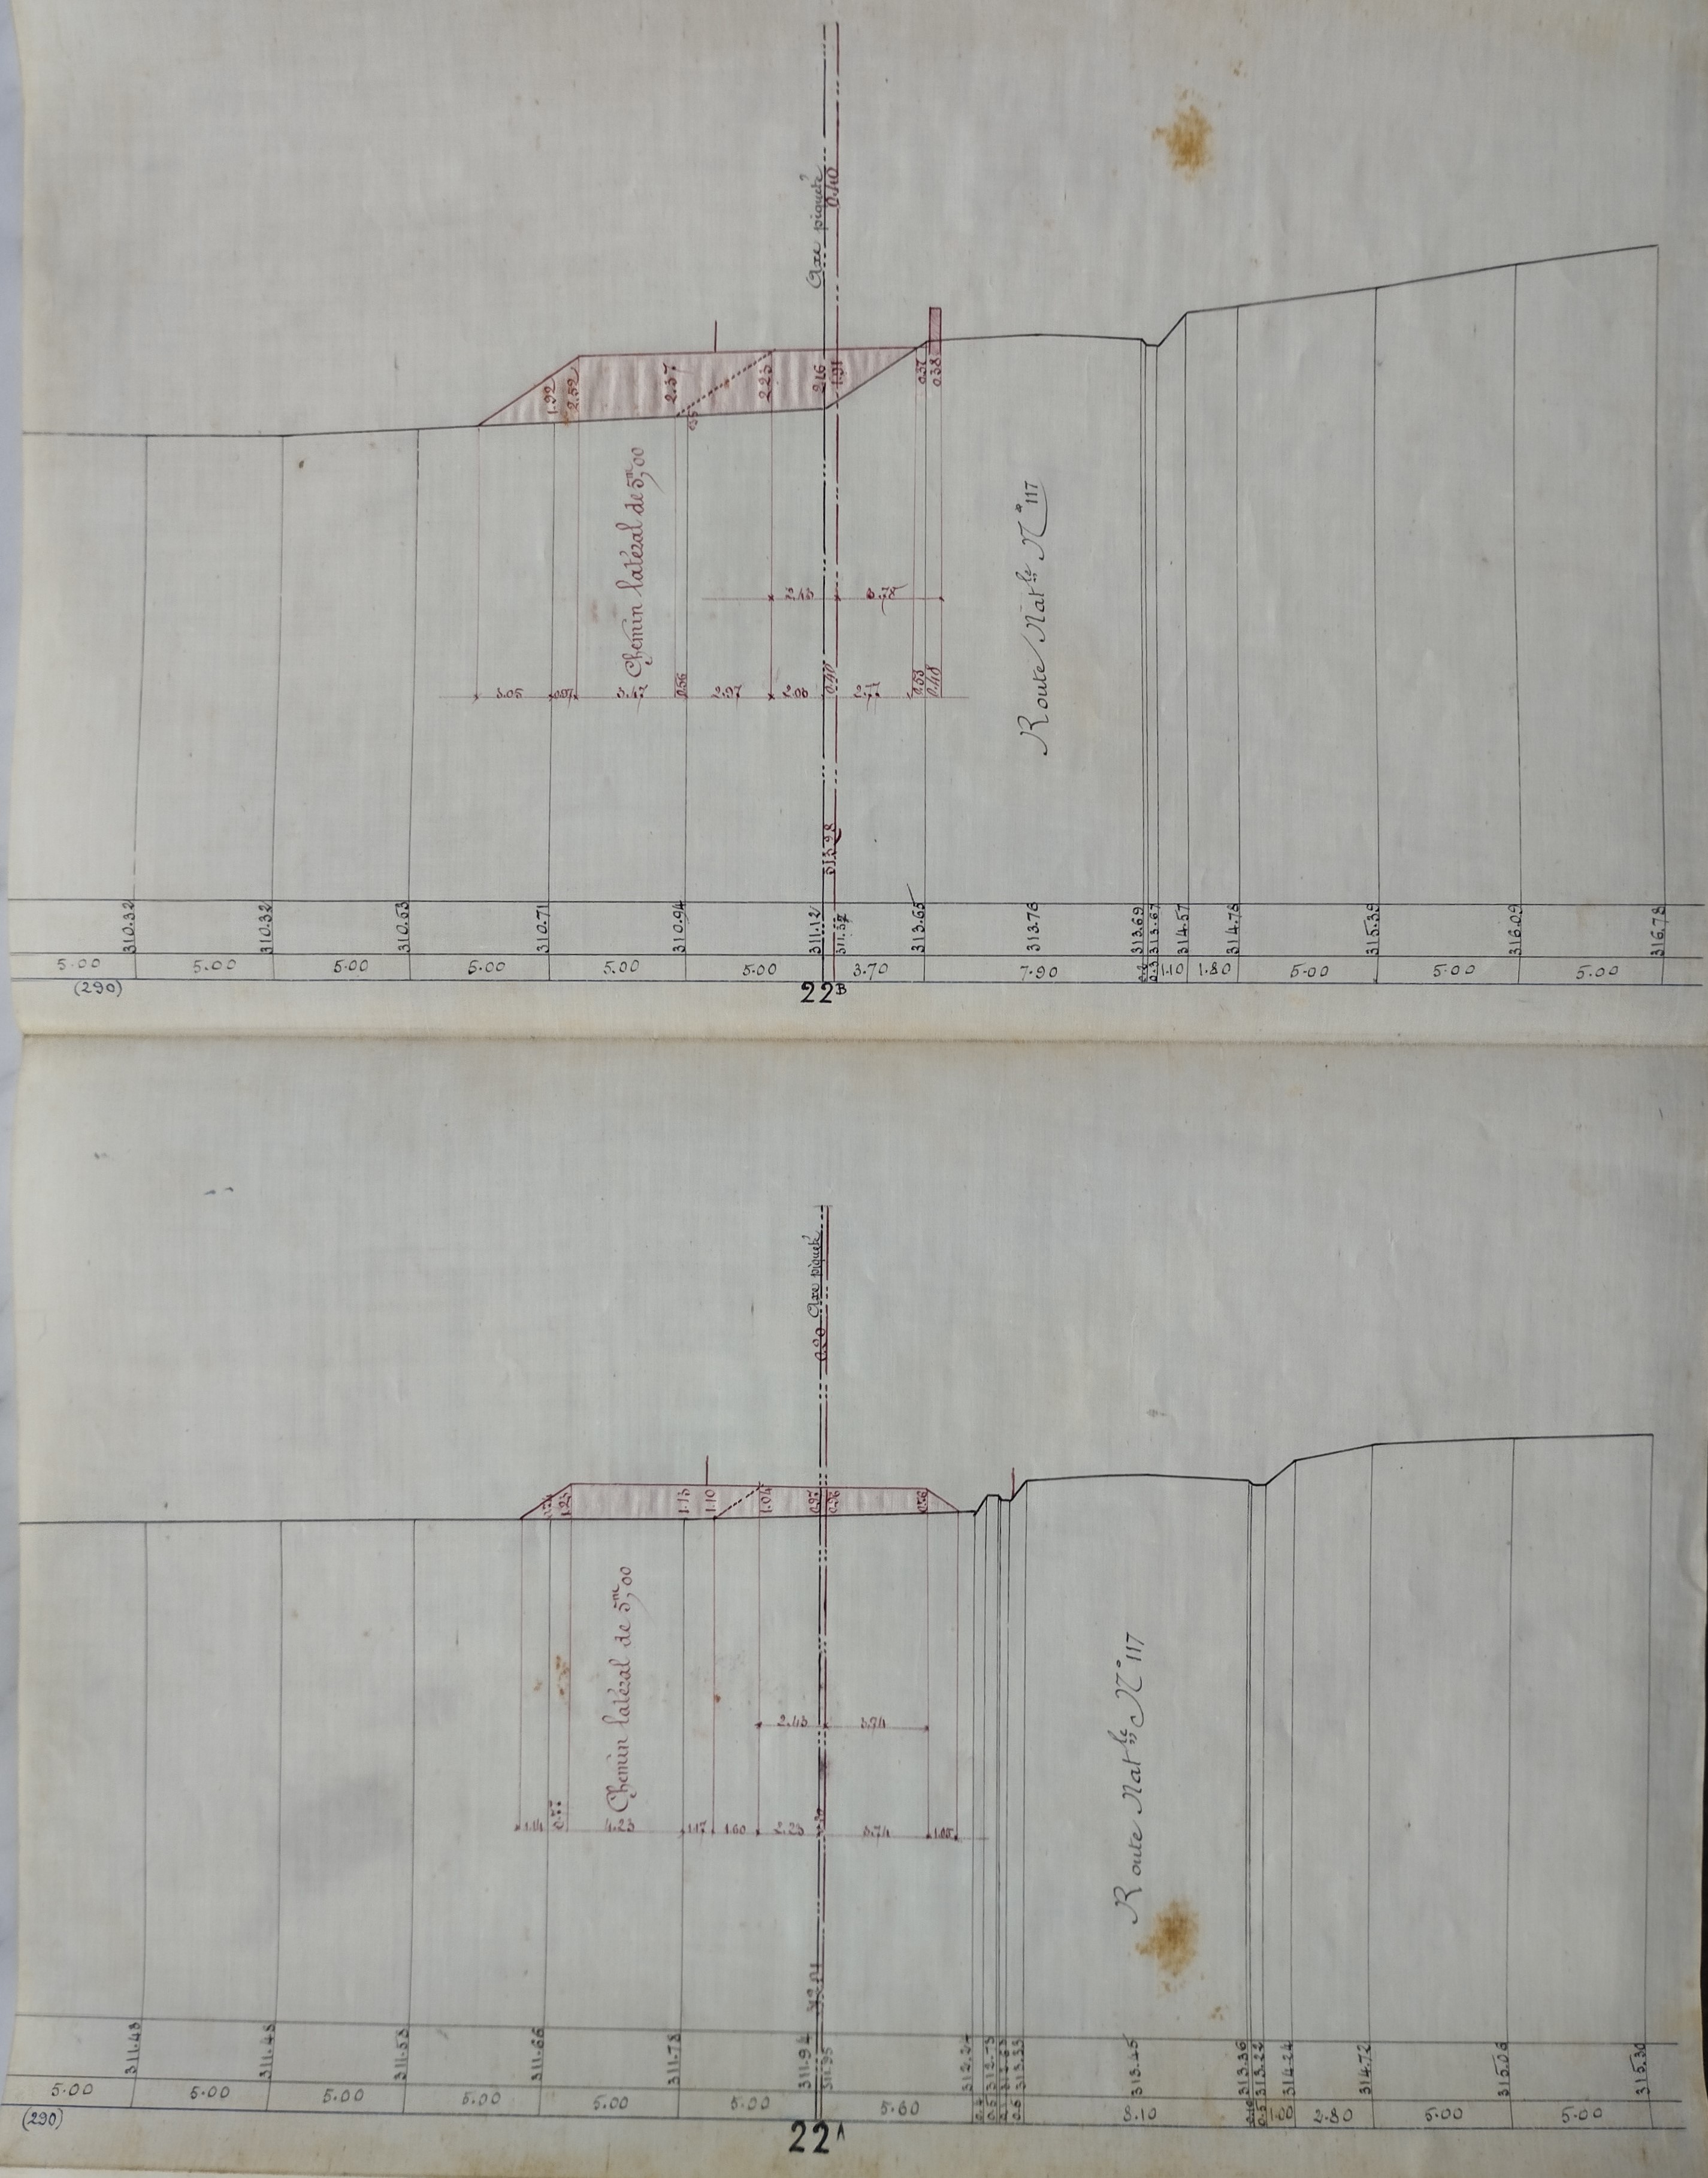 Axe piqué
0.40
1.92
2.52
2.37
2.23
2.16
1.91
0.37
0.38
Chemin latéral de 5m,00
Route Natle N° 117
2.43
3.05
0.97
3.47
0.56
2.97
2.00
0.40
2.71
0.53
0.48
313.28
310.32
310.32
310.53
310.71
310.94
311.12
311.37
313.65
313.76
313.69
313.67
314.57
314.78
315.39
316.09
316.78
5.00
5.00
5.00
5.00
5.00
5.00
3.70
7.90
1.10
1.80
5.00
5.00
5.00
(290)
22B
Axe piqué
0.20
1.23
1.13
1.10
1.04
0.97
0.96
Chemin latéral de 5m,00
Route Natle N° 117
2.43
3.74
1.14
4.23
1.17
1.60
2.23
0.20
3.74
1.05
311.43
311.43
311.53
311.66
311.78
311.94
311.95
312.24
312.73
313.33
313.45
313.36
313.22
314.24
314.72
315.06
315.30
5.00
5.00
5.00
5.00
5.00
5.00
5.60
8.10
1.00
2.80
5.00
5.00
(290)
22A